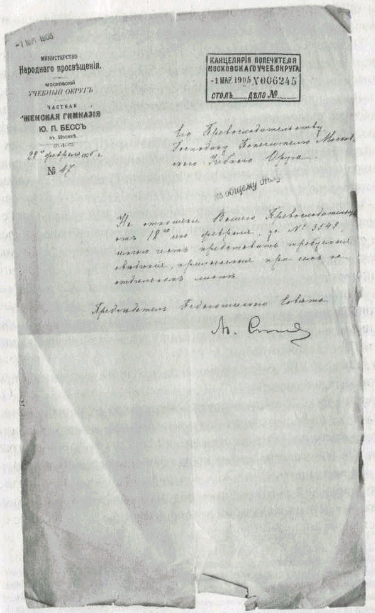 -1 МАР 1905
МИНИСТЕРСТВО
Народнаго просвѣщенія.
МОСКОВСКІЙ
УЧЕБНЫЙ ОКРУГЪ
ЧАСТНАЯ
ЖЕНСКАЯ ГИМНАЗІЯ
Ю. П. БЕССЪ
въ Москвѣ.
28го февраля 1905 г.
№ 47
КАНЦЕЛЯРІЯ ПОПЕЧИТЕЛЯ
МОСКОВСКАГО УЧЕБ. ОКРУГА
-1 МАР. 1905 № 006245
СТОЛЪ ДѢЛО №
Его Превосходительству
Господину Попечителю Москов
скаго Учебнаго Округа.
На отношеніе Вашего Превосходительства
отъ 18го февраля, за № 3548
имѣю честь представить требуемыя
свѣдѣнія, приложенныя при семъ на
отдѣльномъ листѣ.
Предсѣдатель Педагогическаго Совѣта